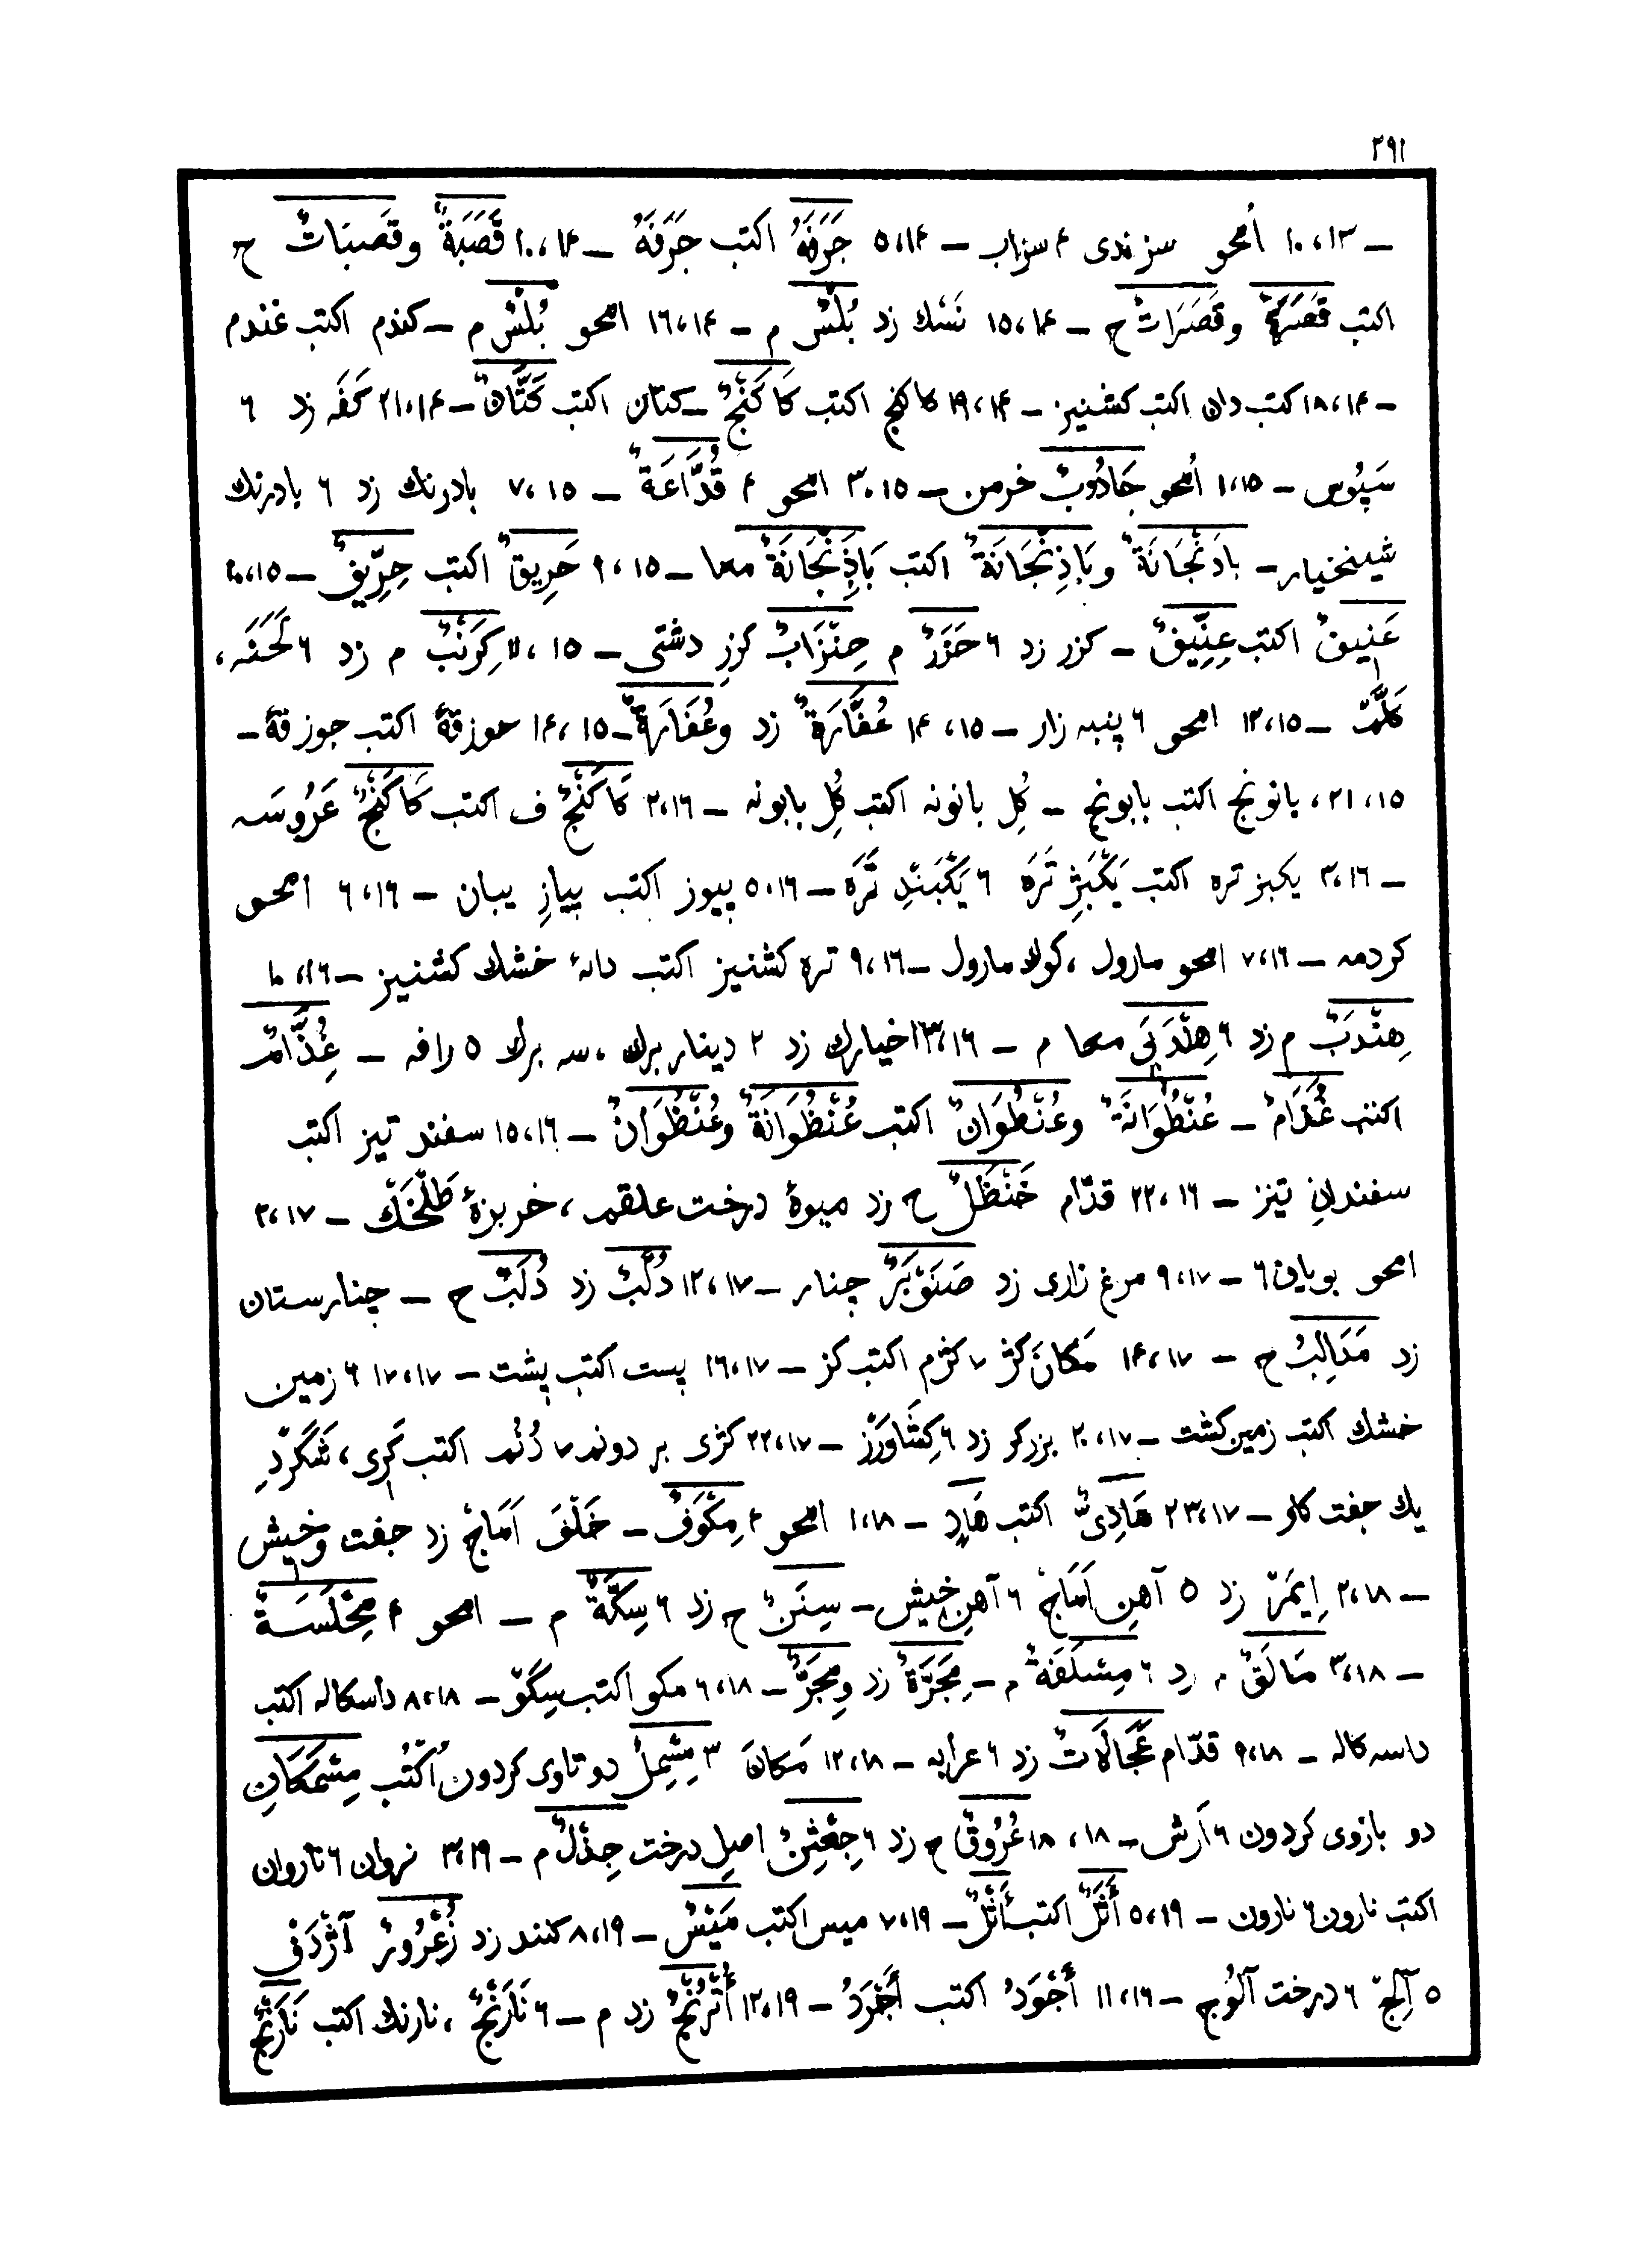 ٢٩١
ـ ١٠،١٣ اُمحو سزندى ۴ سزاب ـ ٥،١۴ جَرَفَةٌ اكتب جَرَفَهٌ ـ ١٠،١۴ قَصَبَةٌ وقَصَبَاتٌ ح
اكتب قَصَرَةٌ وقَصَرَاتٌ ح ـ ١٥،١۴ نَسَك زد بُلْسٌ م ـ ١٦،١۴ امحو بُلْسٌ م ـ كندم اكتب غندم
ـ ١٨،١۴ كتب دان اكتب كشنيز ـ ١٩،١۴ كاكنج اكتب كَاكَنْجٌ ـ كتان اكتب كَتَّانٌ ـ ٢١،١۴ كَفَه زد ٦
سَپُوس ـ ١،١٥ اُمحو جَادُوبٌ خرمن ـ ٣،١٥ امحو ۴ قُدَّاعَةٌ ـ ٧،١٥ بادرنك زد ٦ بادرنك
شينخيار ـ بادَنْجَانَةٌ وبَاذِنْجَانَةٌ اكتب بَاذِنْجَانَةٌ معا ـ ٩،١٥ حَرِيقٌ اكتب حِرِّيفٌ ـ ١٠،١٥
عَنِيقٌ اكتب عِنِّيفٌ ـ كزر زد ٦ حَزَرٌ م حِنْزَابٌ كزرِ دشتى ـ ١١،١٥ كِرَنْبٌ م زد ٦ لَحَنَه،
كَلَمْ ـ ١٣،١٥ امحو ٦ پنبه زار ـ ١۴،١٥ عُفَّارَةٌ زد وعُفَارَةٌ ـ ١۴،١٥ حوزقهٔ اكتب جوزقهٔ ـ
٢١،١٥، يانونج اكتب بابونج ـ كُلِ بانونه اكتب كُلِ بابونه ـ ٢،١٦ كَاكَنْجٌ ف اكتب كَاكَنْجٌ عَرُوسَه
ـ ٣،١٦ يكبز تره اكتب يَكْبَزِ تَرَه ٦ يَكْبَنْدِ تَرَه ـ ٥،١٦ پيوز اكتب پيازِ بيبان ـ ٦،١٦ امحو
كردمه ـ ٧،١٦ امحو مارول، كوك مارول ـ ٩،١٦ تره كشنيز اكتب دانهٔ خشك كشنيز ـ ١٠،١٦
هِنْدَبٌ م زد ٦ هِنْدَبَى معا م ـ ١٣،١٦ خيارك زد ٢ ديناربرك، سه برك ٥ رافه ـ غُذَّامٌ
اكتب غُذَامٌ ـ عُنْطُوَانَةٌ وعُنْطُوَانٌ اكتب عُنْظُوَانَةٌ وعُنْظُوَانٌ ـ ١٥،١٦ سفند تيز اكتب
سفندانِ تيز ـ ٢٢،١٦ قدّام حَنْظَلٌ ح زد ميوهٔ درخت علقم، خربزهٔ طَلْخَك ـ ٣،١٧
امحو بويان ٦ ـ ٩،١٧ مرغ زارى زد صَنَوْبَرٌ چنار ـ ١٢،١٧ دُلْبٌ زد دُلَبٌ ح ـ چنارستان
زد مَدَالِبُ ح ـ ١۴،١٧ مَكانَ كژ ٧ كژم اكتب كز ـ ١٦،١٧ پست اكتب پشت ـ ١٧،١٧ ٦ زمين
خشك اكتب زمين كشت ـ ٢٠،١٧ بزركر زد ٦ كِشَاوَرْز ـ ٢٢،١٧ كژى بر دوند ٧ دُنُم اكتب كَرِى، شَكَرْدِ
يك جفت كاو ـ ٢٣،١٧ هَادِىٌ اكتب هَادٍ ـ ١،١٨ امحو ۴ مِكْوَفٌ ـ خَلْفَ اَمَاج زد جفت وخيش
ـ ٢،١٨ اِيمَرْ زد ٥ آهنِ اَمَاج ٦ آهنِ خيش ـ سِنَنٌ ح زد ٦ سِكَّةٌ م ـ امحو ۴ مِخْلَسَةٌ
ـ ٣،١٨ مَالَقٌ م زد ٦ مِسْلَفَةٌ م ـ مِجَرَّةٌ زد ومِجَرٌّ ـ ٦،١٨ مكو اكتب سِكَوْ ـ ٨،١٨ داسكاله اكتب
داسه كاله ـ ٩،١٨ قدّام عَجَالَاتٌ زد ٦ عرابه ـ ١٢،١٨ مَكانَ ٣ مِشْمِلٌ دو تاوى كردون اُكْتُب مِسْمَكَانِ
دو بازوى كردون ٦ اَرش ـ ١٨،١٨ عُرُوقٌ ح زد ٦ جِعْثِنٌ اصلِ درخت جِذْلٌ م ـ ٣،١٩ نروان ٦ ناروان
اكتب نارون ٦ نارون ـ ٥،١٩ أَثَلٌ اكتب أَثْلٌ ـ ٧،١٩ ميس اكتب مَيْسٌ ـ ٨،١٩ كنند زد زُعْرُورٌ آژدَف
٥ آلِج ٦ درخت آلُوج ـ ١١،١٦ أَجْوَدُ اكتب أَجْرَدُ ـ ١٢،١٩ أُتْرُنْجٌ زد م ـ ٦ نَارَنْجٌ، نارنك اكتب نَارَنْجٌ